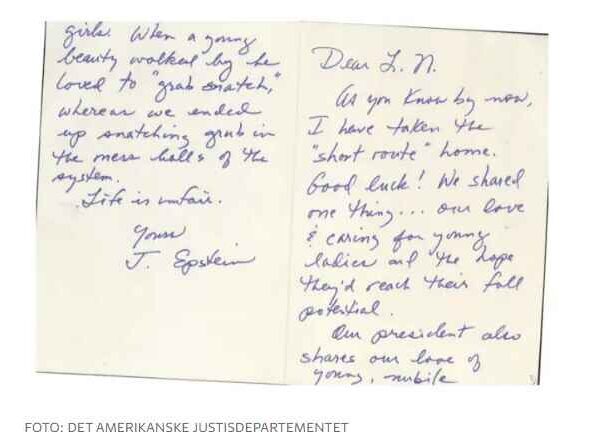 Dear L. N.
As you know by now,
I have taken the
"short route" home.
Good luck! We shared
one thing... our love
& caring for young
ladies and the hope
they'd reach their full
potential.
Our president also
shares our love of
young, nubile
girls. When a young
beauty walked by he
loved to "grab snatch,"
whereas we ended
up snatching grub in
the mess halls of the
system.
Life is unfair.
Yours
J. Epstein
FOTO: DET AMERIKANSKE JUSTISDEPARTEMENTET